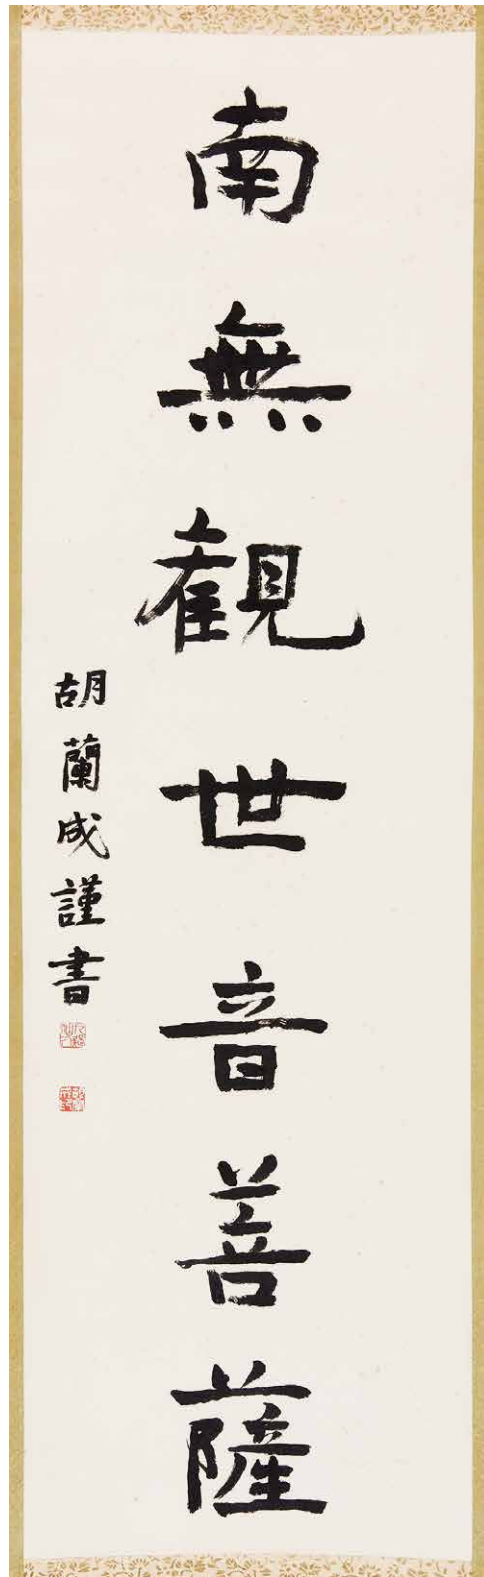 南無觀世音菩薩
胡蘭成謹書